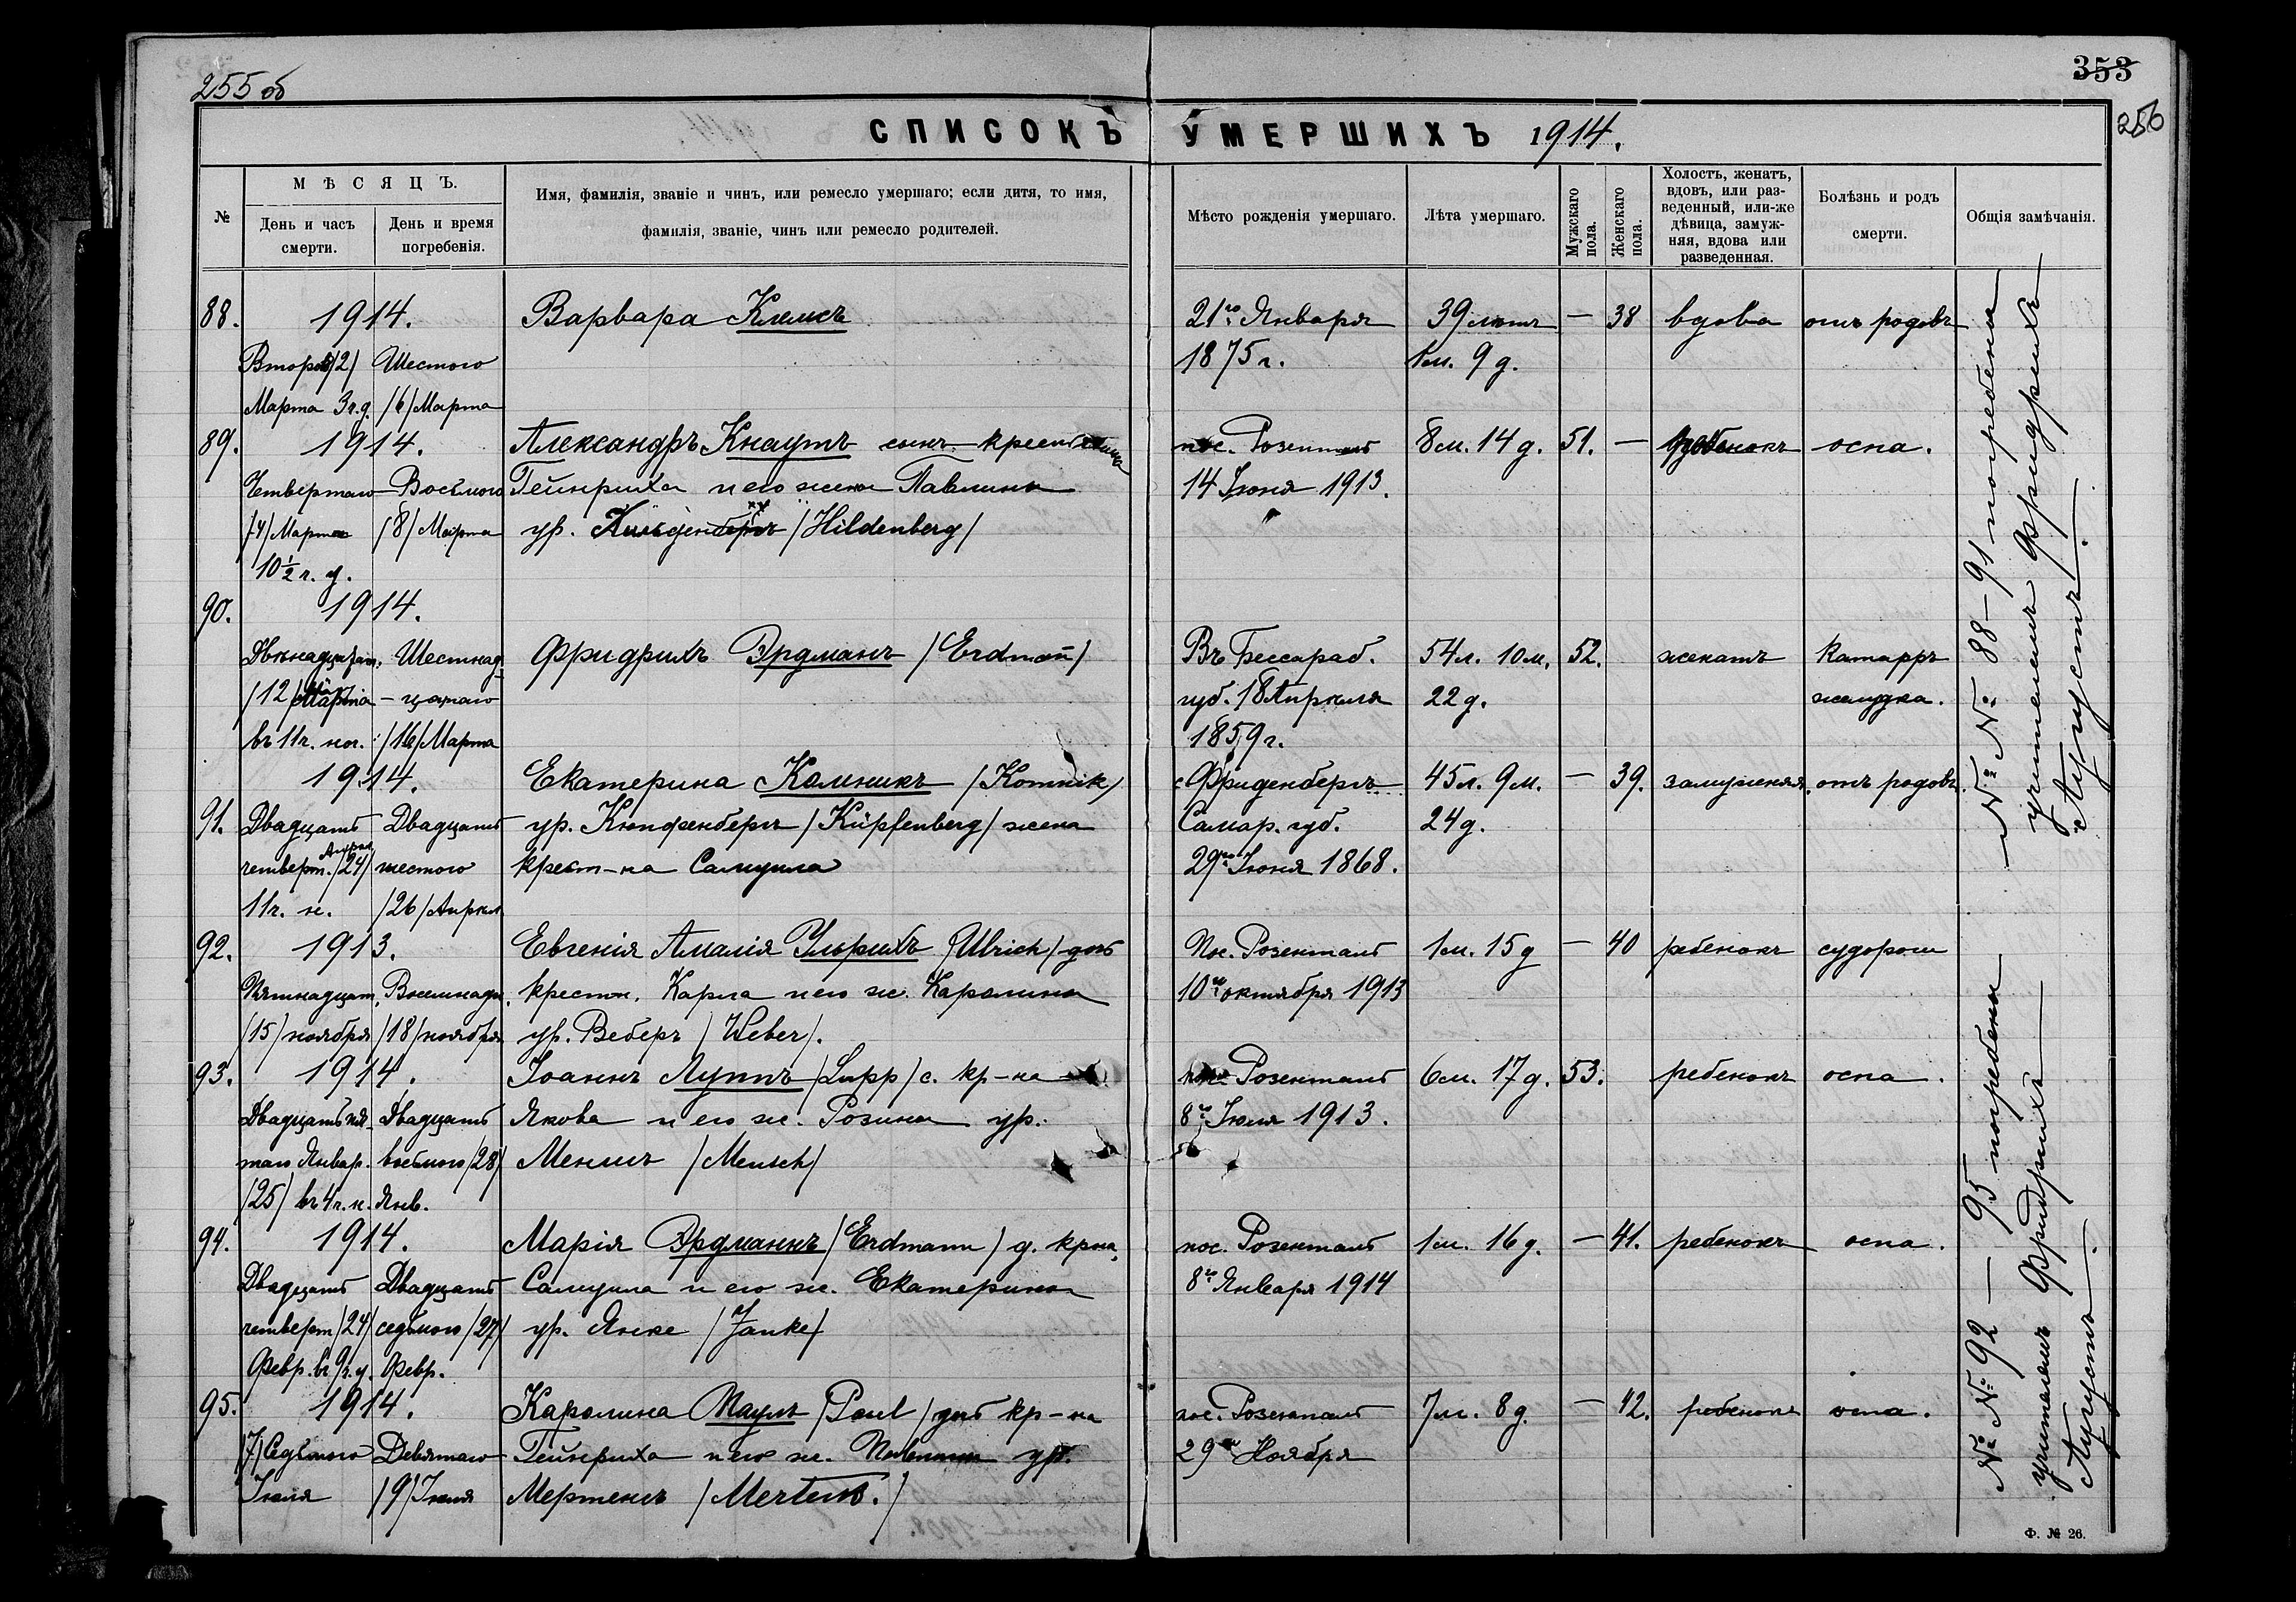 255 об
353
256
СПИСОКЪ УМЕРШИХЪ 1914.
№
МѢСЯЦЪ.
День и часъ смерти.
День и время погребенія.
Имя, фамилія, званіе и чинъ, или ремесло умершаго; если дитя, то имя,
фамилія, званіе, чинъ или ремесло родителей.
Мѣсто рожденія умершаго.
Лѣта умершаго.
Мужскаго пола.
Женскаго пола.
Холостъ, женатъ,
вдовъ, или раз-
веденный, или-же
дѣвица, замуж-
няя, вдова или
разведенная.
Болѣзнь и родъ
смерти.
Общія замѣчанія.
88. 1914. Варвара Клемсъ 21го Января 39 лѣтъ — 38 вдова отъ родовъ
Второго /2/ Шестого 1875 г. 1 м. 9 д.
Марта 3 ч. д. /6/ Марта
89. 1914. Александръ Кнаутъ сынъ крестьянина пос. Розенталь 8 м. 14 д. 51. — ребенокъ оспа.
Четвертаго Восьмого Гейнриха и его жены Павлины 14 Іюня 1913.
/4/ Марта /8/ Марта ур. Хильденбергъ /Hildenberg/
10½ ч. у.
90. 1914.
Двѣнадцатаг. Шестнад- Фридрихъ Эрдманъ /Erdman̄/ Въ Бессараб. 54 л. 10 м. 52. женатъ Катарръ
/12/ Марта -цатаго губ. 18 Апрѣля 22 д. желудка.
въ 11 ч. ноч. /16/ Марта 1859 г.
1914. Екатерина Комникъ /Komnik/ с. Фриденбергъ 45 л. 9 м. — 39. замужняя. отъ родовъ.
91. Двадцать Двадцать ур. Кюпфенбергъ /Küpfenberg/ жена Самар. губ. 24 д.
четверт. /24/ Апрѣл. шестого крест-на Самуила 29го Іюня 1868.
11 ч. н. /26/ Апрѣля
92. 1913. Евгенія Амалія Ульрихъ /Ulrich/ дочь Пос. Розенталь 1 м. 15 д — 40 ребенокъ судороги
Пятнадцат. Восемнадц. крестьн. Карла и его ж. Каролины 10го октября 1913
/15/ ноября /18/ ноября ур. Веберъ /Weber/.
93. 1914. Іоаннъ Луппъ /Lupp/ с. кр-на пос. Розенталь 6 м. 17 д. 53. ребенокъ оспа.
Двадцать пя- Двадцать Якова и его ж. Розины ур. 8го Іюля 1913.
таго Январ. восьмого /28/ Меншъ /Mensch/
/25/ въ 4 ч. н. Янв.
94. 1914. Марія Эрдманнъ /Erdmann/ д. кр-на пос. Розенталь 1 м. 16 д. — 41. ребенокъ оспа.
Двадцать Двадцать Самуила и его ж. Екатерины 8го Января 1914
четверт /24/ седьмого /27/ ур. Янке /Janke/
Февр. въ 9 ч. у. Февр.
95. 1914. Каролина Пауль /Paul/ дочь кр-на пос. Розенталь 7 м. 8 д. — 42. ребенокъ оспа.
/7/ Седьмого Девятаго Гейнриха и его ж. Павлины ур. 29го Ноября
Іюля /9/ Іюля Мертенсъ /Mertens./
№ № 88 - 91 погребены
учителемъ Фридрихъ
Августъ.
№ № 92 — 95 погребены
учителемъ Фридрихъ
Августъ.
Ф. № 26.